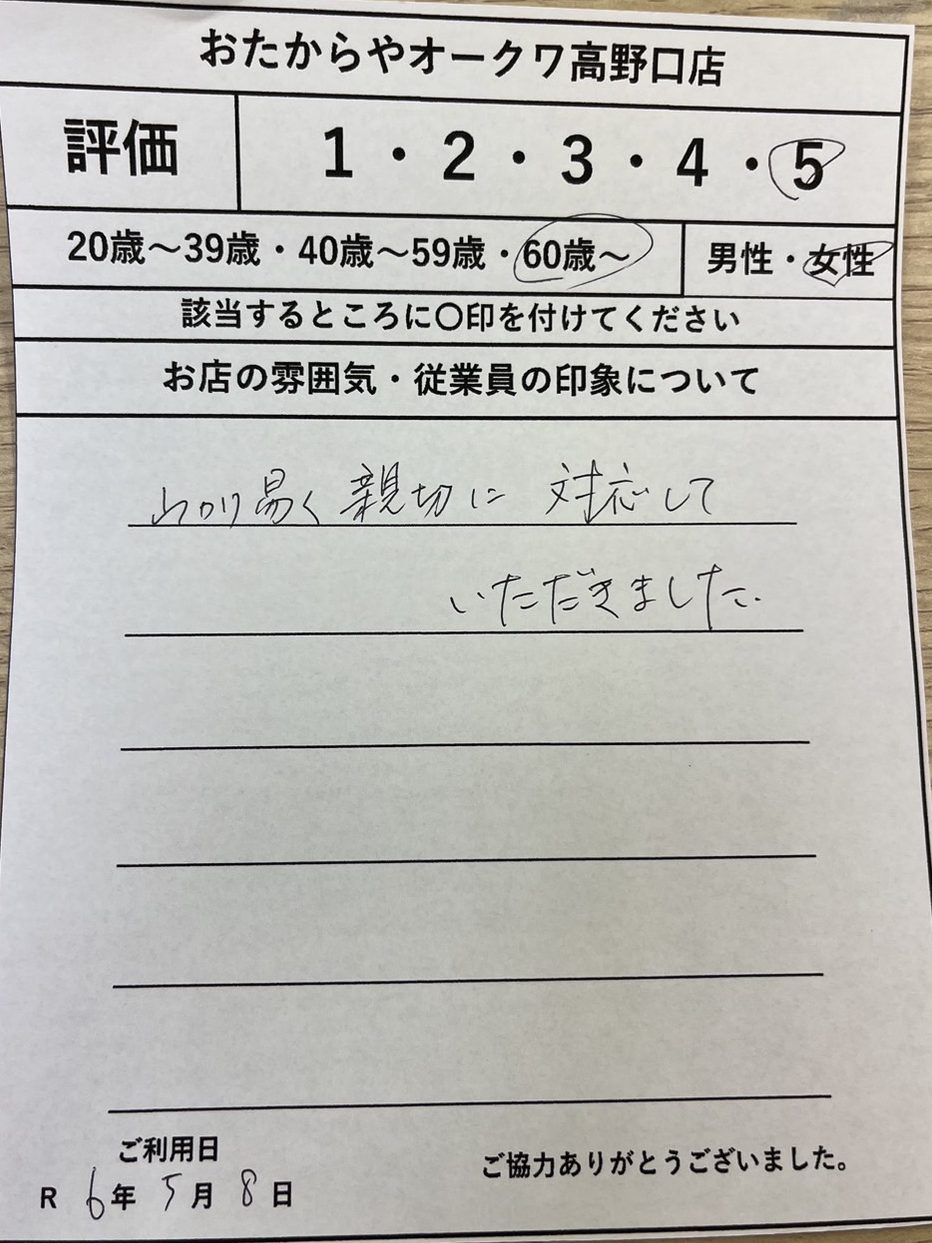 おたからやオークワ高野口店
評価 1・2・3・4・5
20歳～39歳・40歳～59歳・60歳～ 男性・女性
該当するところに〇印を付けてください
お店の雰囲気・従業員の印象について
わかり易く親切に 対応して
いただきました.
ご利用日
R 6年 5月 8日
ご協力ありがとうございました。